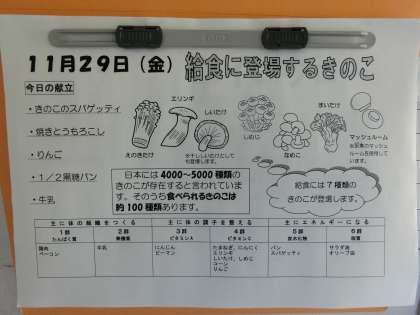 11月29日(金) 給食に登場するきのこ
今日の献立
・きのこのスパゲッティ
・焼きとうもろこし
・りんご
・1/2黒糖パン
・牛乳
エリンギ
しいたけ
えのきたけ
しめじ
なめこ
まいたけ
マッシュルーム
日本には4000~5000種類の
きのこが存在すると言われていま
す。そのうち食べられるきのこは
約100種類あります。
給食には7種類の
きのこが登場します。
主に体の組織をつくる 主に体の調子を整える 主にエネルギーになる
1群 2群 3群 4群 5群 6群
たんぱく質 無機質 ビタミンA ビタミンC 炭水化物 脂質
鶏肉
ベーコン
牛乳
にんじん
ピーマン
たまねぎ、にんにく
エリンギ
しいたけ、しめじ
コーン
りんご
パン
スパゲッティ
サラダ油
オリーブ油